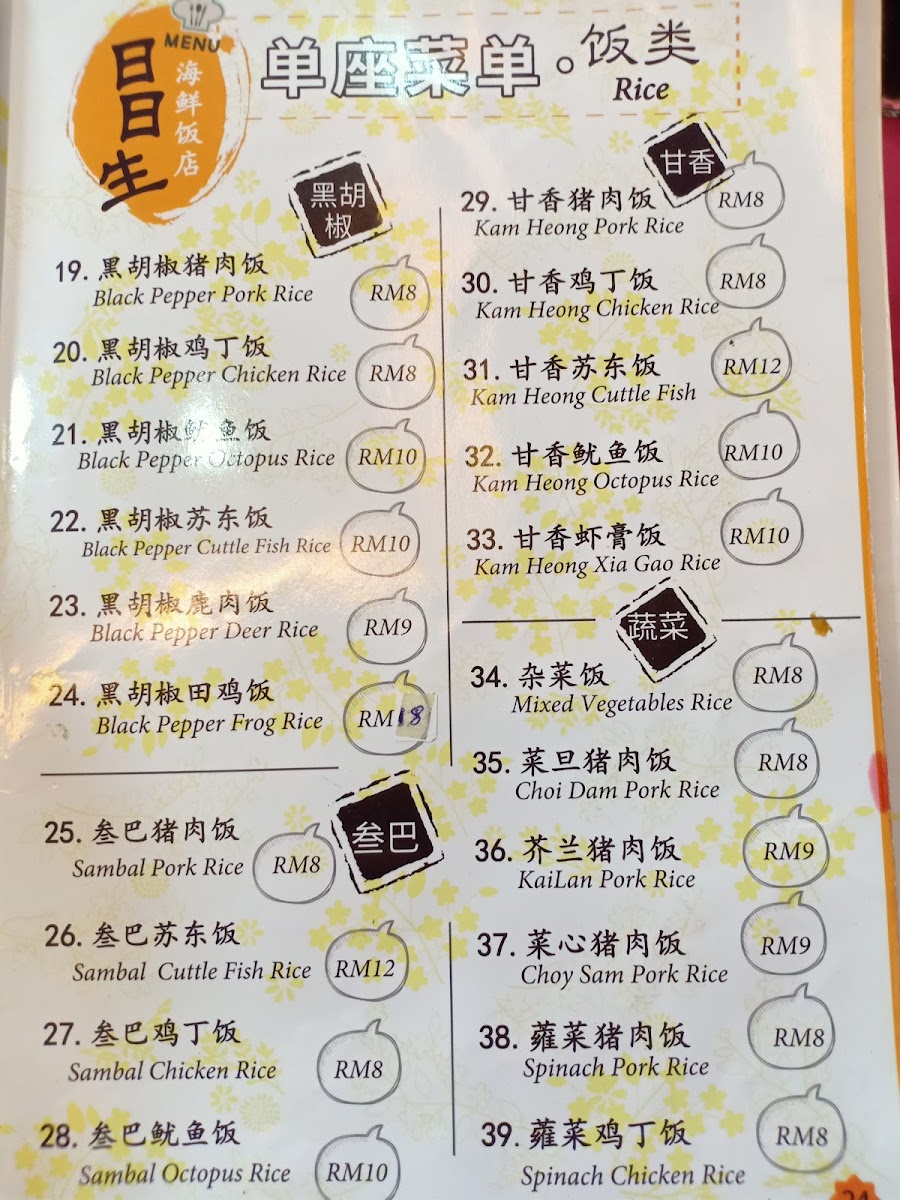 MENU
日日生
海鲜饭店
单座菜单。饭类
Rice
黑胡
椒
19. 黑胡椒猪肉饭
Black Pepper Pork Rice RM8
20. 黑胡椒鸡丁饭
Black Pepper Chicken Rice RM8
21. 黑胡椒鱿鱼饭
Black Pepper Octopus Rice RM10
22. 黑胡椒苏东饭
Black Pepper Cuttle Fish Rice RM10
23. 黑胡椒鹿肉饭
Black Pepper Deer Rice RM9
24. 黑胡椒田鸡饭
Black Pepper Frog Rice RM18
叁巴
25. 叁巴猪肉饭
Sambal Pork Rice RM8
26. 叁巴苏东饭
Sambal Cuttle Fish Rice RM12
27. 叁巴鸡丁饭
Sambal Chicken Rice RM8
28. 叁巴鱿鱼饭
Sambal Octopus Rice RM10
甘香
29. 甘香猪肉饭
Kam Heong Pork Rice RM8
30. 甘香鸡丁饭
Kam Heong Chicken Rice RM8
31. 甘香苏东饭
Kam Heong Cuttle Fish RM12
32. 甘香鱿鱼饭
Kam Heong Octopus Rice RM10
33. 甘香虾膏饭
Kam Heong Xia Gao Rice RM10
蔬菜
34. 杂菜饭
Mixed Vegetables Rice RM8
35. 菜旦猪肉饭
Choi Dam Pork Rice RM8
36. 芥兰猪肉饭
KaiLan Pork Rice RM9
37. 菜心猪肉饭
Choy Sam Pork Rice RM9
38. 蕹菜猪肉饭
Spinach Pork Rice RM8
39. 蕹菜鸡丁饭
Spinach Chicken Rice RM8